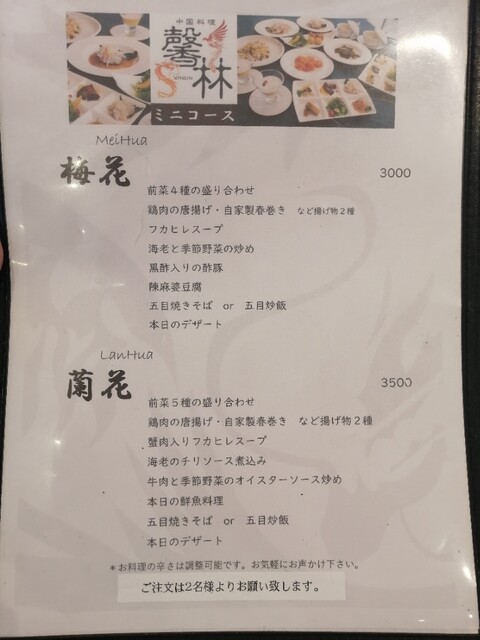 中国料理
馨林
ミニコース
MeiHua
梅花 3000
前菜４種の盛り合わせ
鶏肉の唐揚げ・自家製春巻き など揚げ物２種
フカヒレスープ
海老と季節野菜の炒め
黒酢入りの酢豚
陳麻婆豆腐
五目焼きそば or 五目炒飯
本日のデザート
LanHua
蘭花 3500
前菜５種の盛り合わせ
鶏肉の唐揚げ・自家製春巻き など揚げ物２種
蟹肉入りフカヒレスープ
海老のチリソース煮込み
牛肉と季節野菜のオイスターソース炒め
本日の鮮魚料理
五目焼きそば or 五目炒飯
本日のデザート
＊お料理の辛さは調整可能です。お気軽にお声かけ下さい。
ご注文は2名様よりお願い致します。